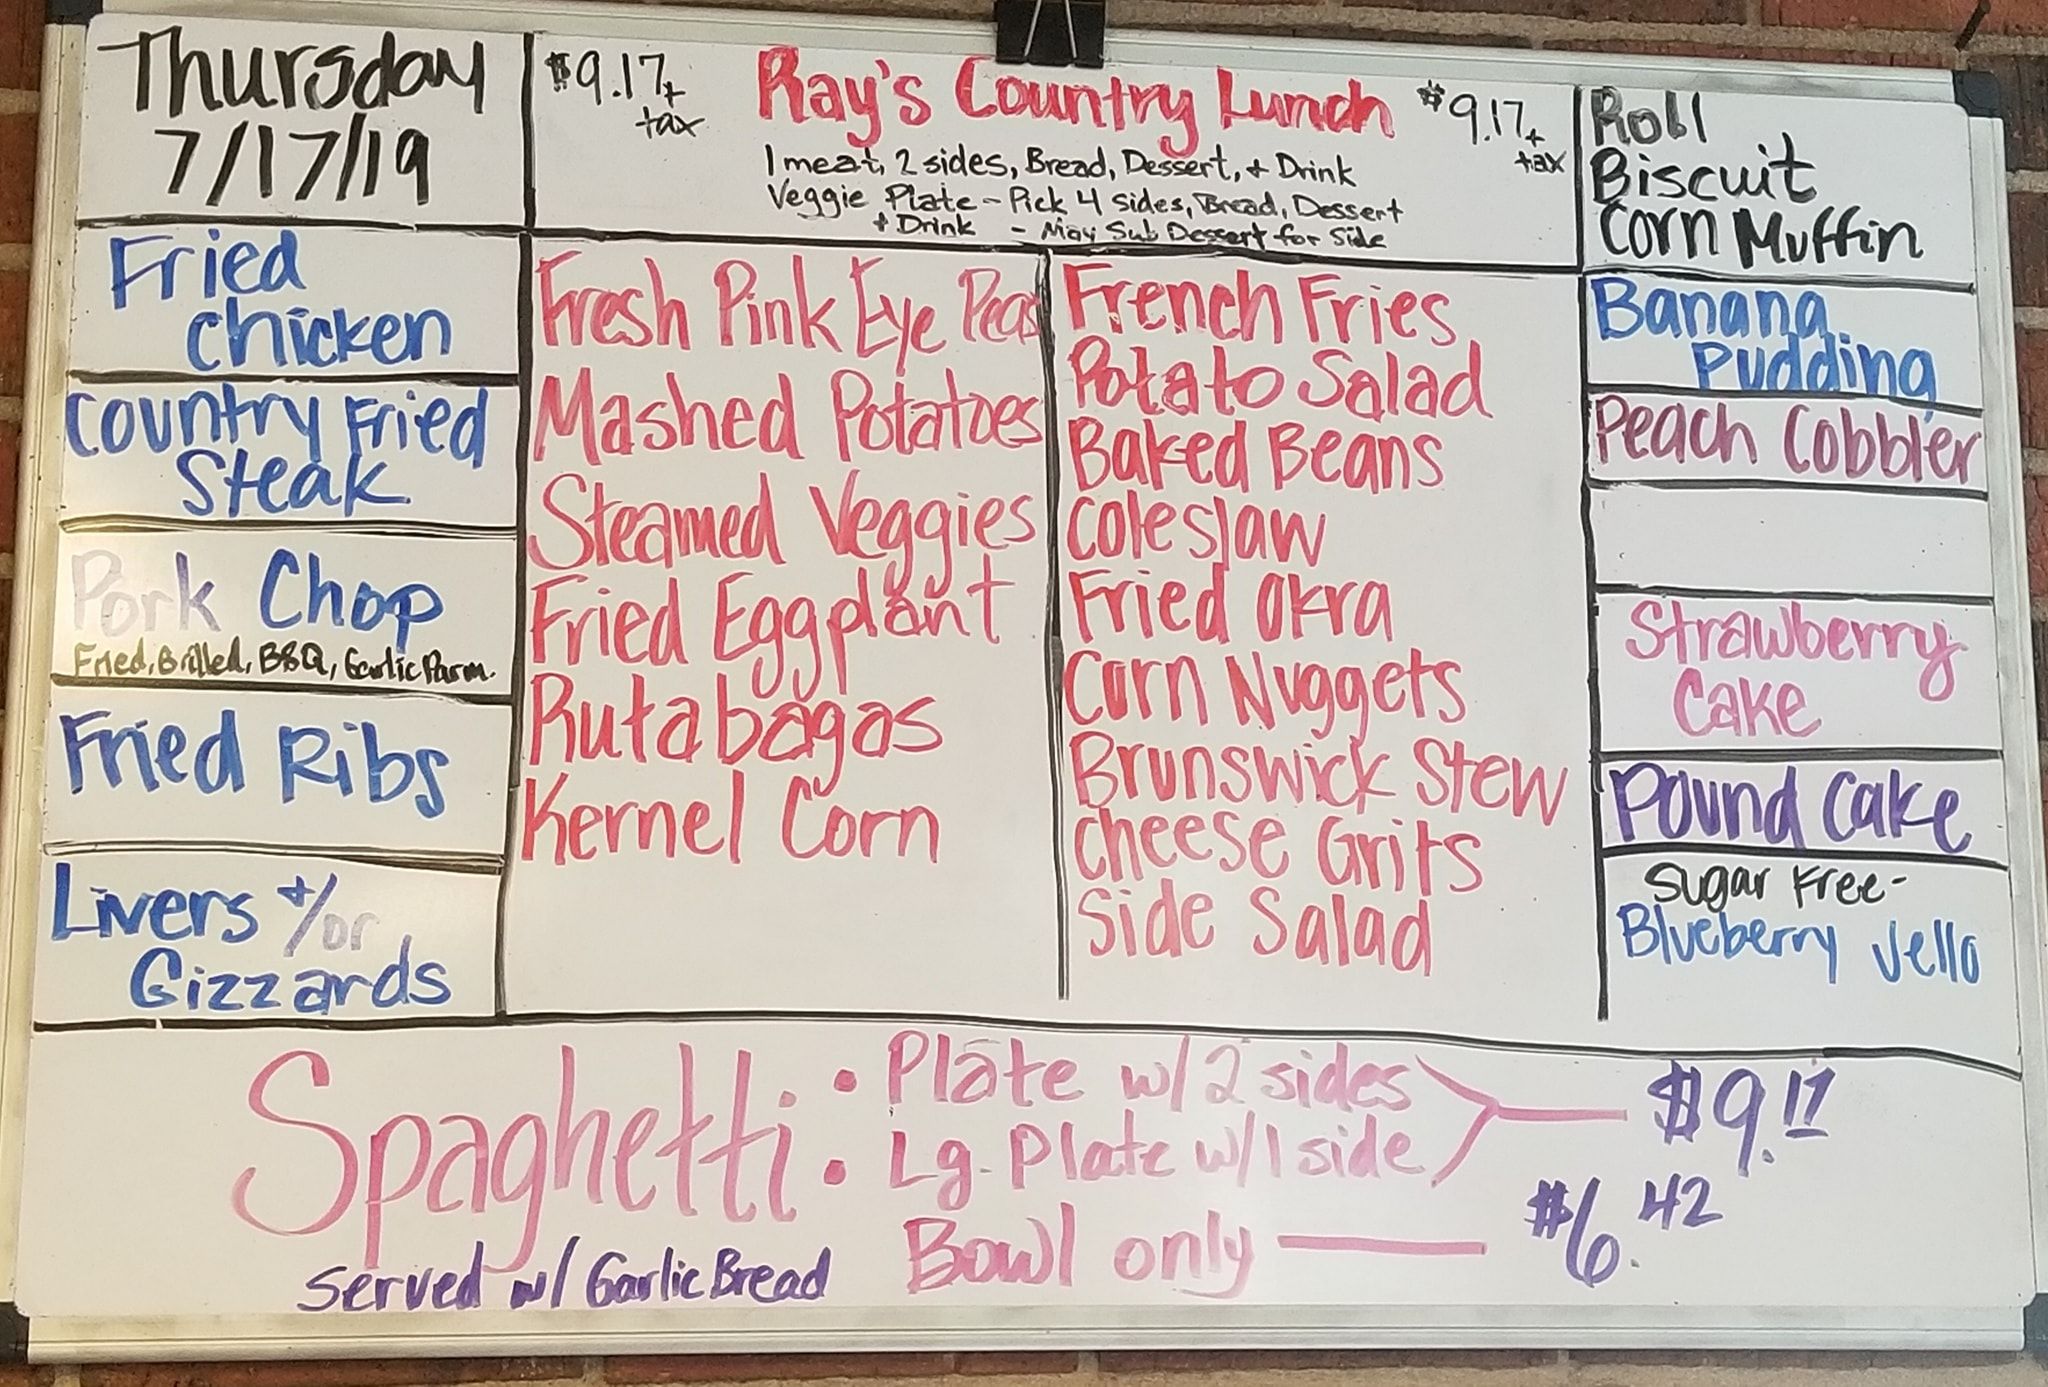 Thursday
7/17/19
$9.17+
tax
Ray's Country Lunch
$9.17+
tax
1 meat, 2 sides, Bread, Dessert, + Drink
Veggie Plate - Pick 4 sides, Bread, Dessert
+ Drink - May Sub Dessert for Side
Roll
Biscuit
Corn Muffin
Fried
Chicken
Country Fried
Steak
Pork Chop
Fried, Grilled, BBQ, Garlic Parm.
Fried Ribs
Livers +/or
Gizzards
Fresh Pink Eye Peas
Mashed Potatoes
Steamed Veggies
Fried Eggplant
Rutabagas
Kernel Corn
French Fries
Potato Salad
Baked Beans
Coleslaw
Fried Okra
Corn Nuggets
Brunswick Stew
Cheese Grits
Side Salad
Banana
Pudding
Peach Cobbler
Strawberry
Cake
Pound Cake
Sugar Free-
Blueberry Jello
Spaghetti:
Served w/ Garlic Bread
Plate w/ 2 sides
Lg. Plate w/ 1 side
$9.17
Bowl only
$6.42